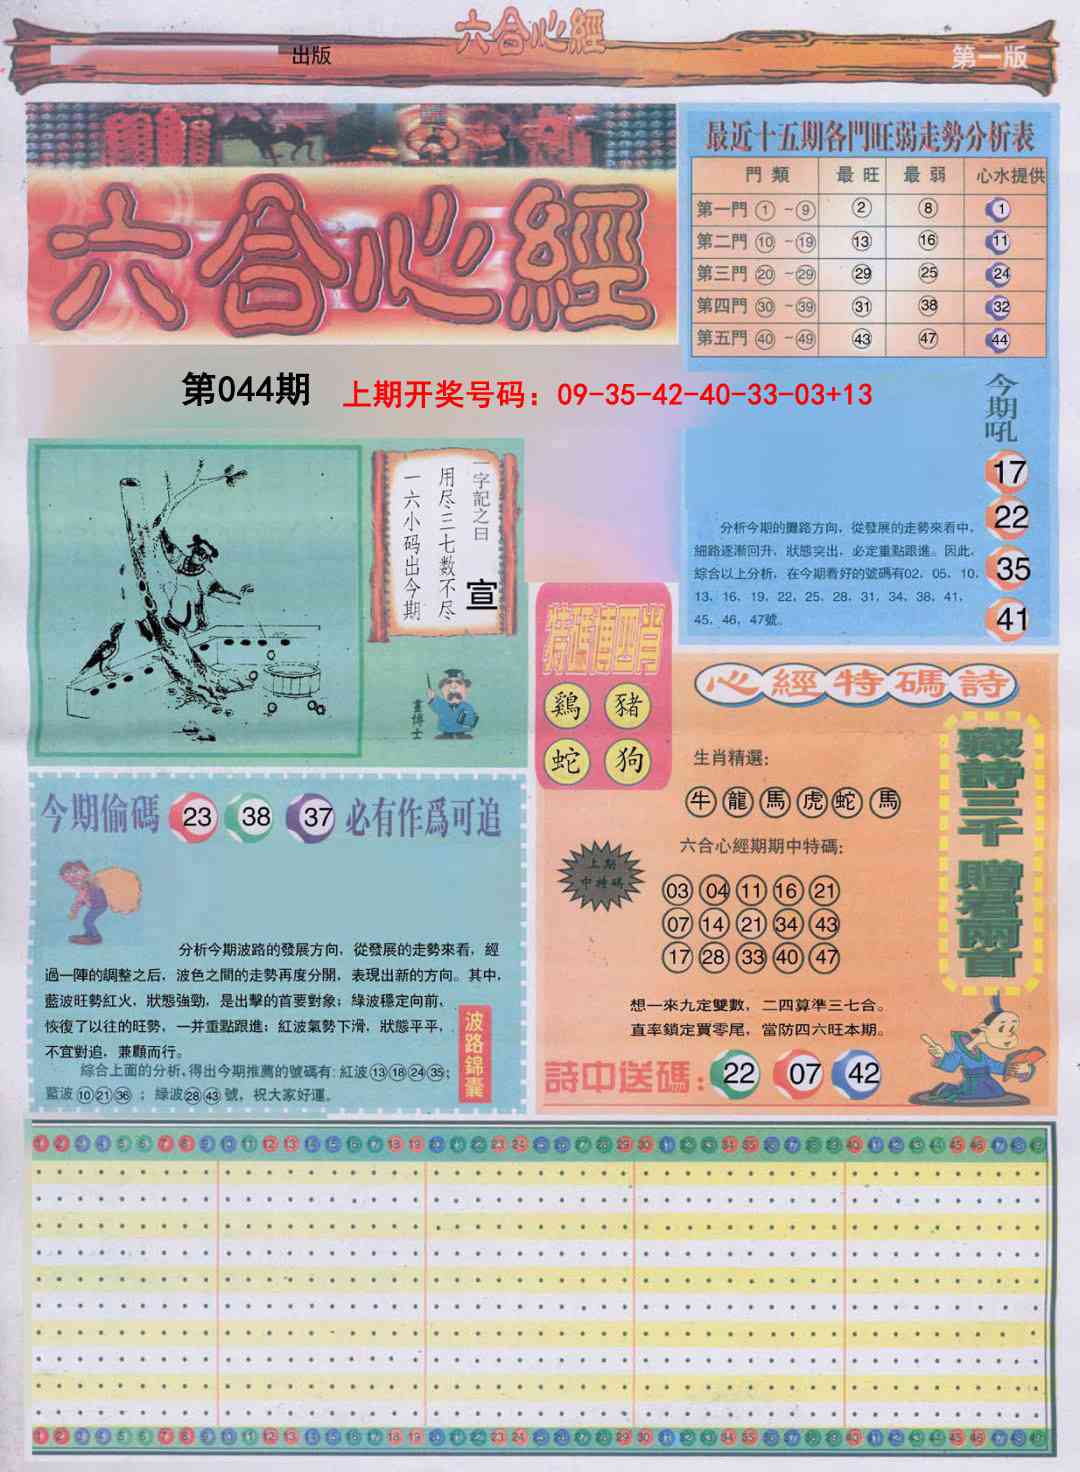 六合心經
出版
第一版
六合心經
最近十五期各門旺弱走勢分析表
門類 最旺 最弱 心水提供
第一門 ① ~ ⑨ 2 8 1
第二門 ⑩ ~ ⑲ 13 16 11
第三門 ⑳ ~ ㉙ 29 25 24
第四門 ㉚ ~ ㊴ 31 38 32
第五門 ㊵ ~ ㊾ 43 47 44
第044期
上期开奖号码：09-35-42-40-33-03+13
今期吼
17
22
35
41
分析今期的攤路方向，從發展的走勢來看中，
細路逐漸回升，狀態突出，必定重點跟進。因此，
綜合以上分析，在今期看好的號碼有02、05、10、
13、16、19、22、25、28、31、34、38、41、
45、46、47號。
一字記之曰
宣
用尽三七数不尽
一六小码出今期
畫博士
特碼博四肖
鷄 豬
蛇 狗
心經特碼詩
生肖精選：
牛 龍 馬 虎 蛇 馬
六合心經期期中特碼：
上期
中特碼
03 04 11 16 21
07 14 21 34 43
17 28 33 40 47
想一來九定雙數，二四算準三七合。
直率鎖定買零尾，當防四六旺本期。
詩中送碼：22 07 42
贈君兩首
今期偷碼 23 38 37 必有作爲可追
分析今期波路的發展方向，從發展的走勢來看，經
過一陣的調整之后，波色之間的走勢再度分開，表現出新的方向。其中，
藍波旺勢紅火，狀態強勁，是出擊的首要對象；綠波穩定向前，
恢復了以往的旺勢，一并重點跟進；紅波氣勢下滑，狀態平平，
不宜對追，兼顧而行。
綜合上面的分析，得出今期推薦的號碼有：紅波⑬⑱㉔㉟；
藍波⑩㉑㊱；綠波㉘㊸號，祝大家好運。
波路錦囊